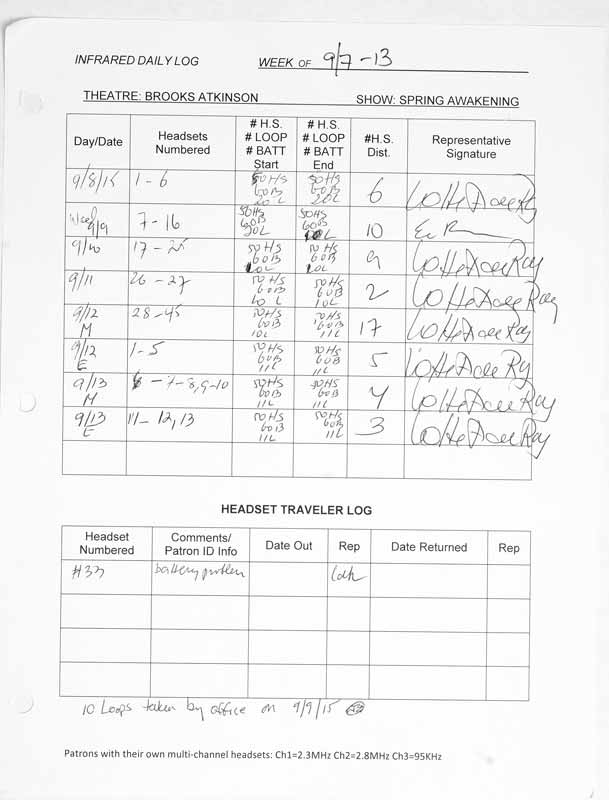 INFRARED DAILY LOG WEEK OF 9/7-13
THEATRE: BROOKS ATKINSON SHOW: SPRING AWAKENING
Day/Date Headsets Numbered # H.S. # LOOP # BATT Start # H.S. # LOOP # BATT End #H.S. Dist. Representative Signature
9/8/15 1-6 50HS 60B 20L 50HS 60B 20L 6
Wed 9/9 7-16 50HS 60B 20L 50HS 60B 10L 10
9/10 17-25 50HS 60B 10L 50HS 60B 10L 9
9/11 26-27 50HS 60B 10L 50HS 60B 10L 2
9/12 M 28-45 50HS 60B 10L 50HS 60B 11L 17
9/12 E 1-5 50HS 60B 11L 50HS 60B 11L 5
9/13 M 6-7-8,9-10 50HS 60B 11L 50HS 60B 11L 4
9/13 E 11-12,13 50HS 60B 11L 50HS 60B 11L 3
HEADSET TRAVELER LOG
Headset Numbered Comments/ Patron ID Info Date Out Rep Date Returned Rep
#33 battery problem
10 Loops taken by office on 9/9/15
Patrons with their own multi-channel headsets: Ch1=2.3MHz Ch2=2.8MHz Ch3=95KHz